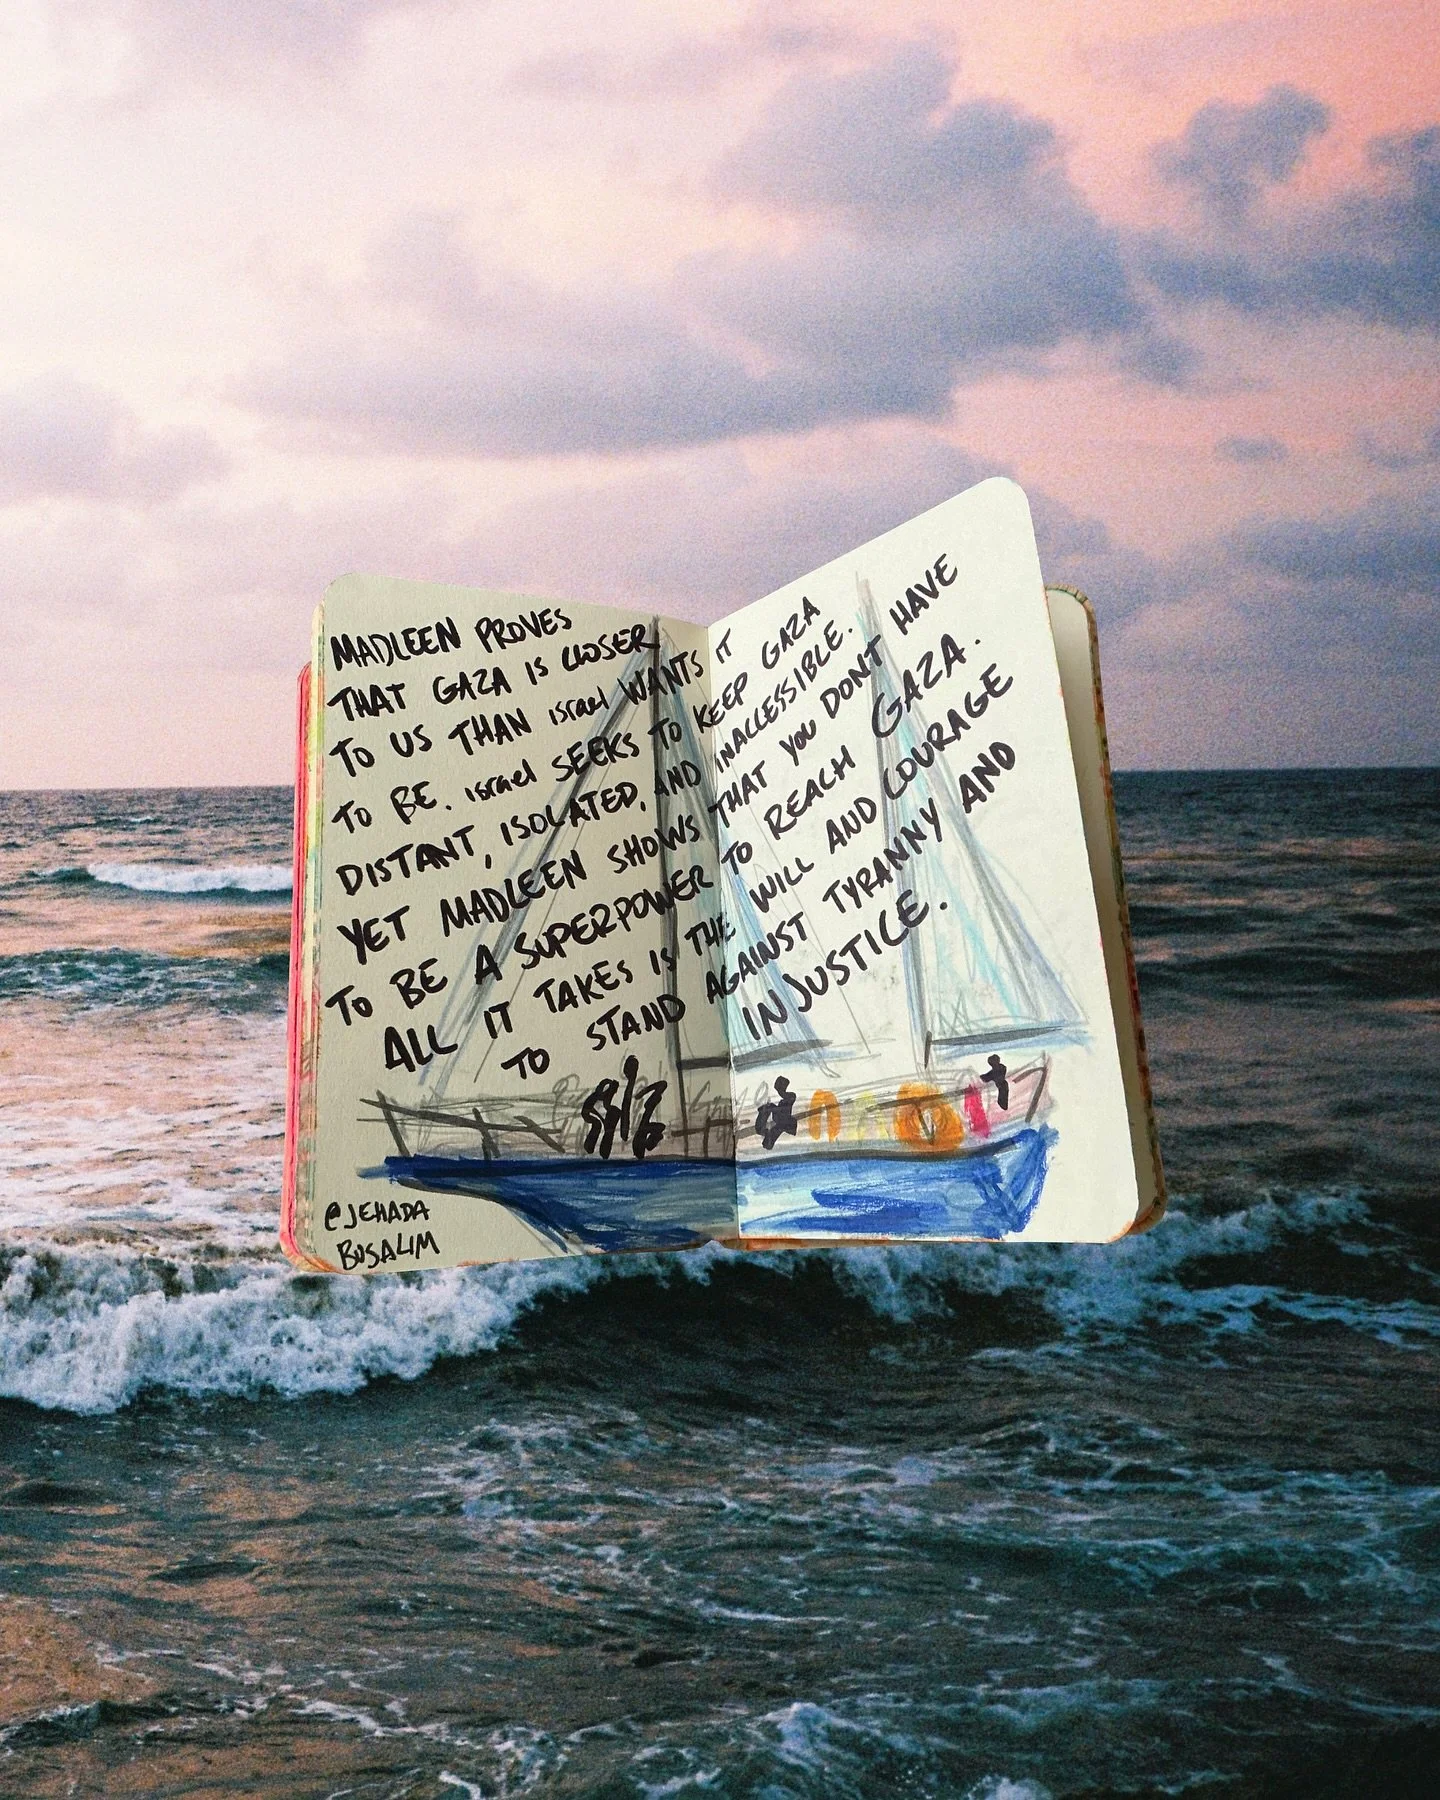 MADLEEN PROVES
THAT GAZA IS CLOSER
TO US THAN israel WANTS IT
TO BE. israel SEEKS TO KEEP GAZA
DISTANT, ISOLATED, AND INACCESSIBLE.
YET MADLEEN SHOWS THAT YOU DONT HAVE
TO BE A SUPERPOWER TO REACH GAZA.
ALL IT TAKES IS THE WILL AND COURAGE
TO STAND AGAINST TYRANNY AND
INJUSTICE.
@JEHADA
BUSALIM